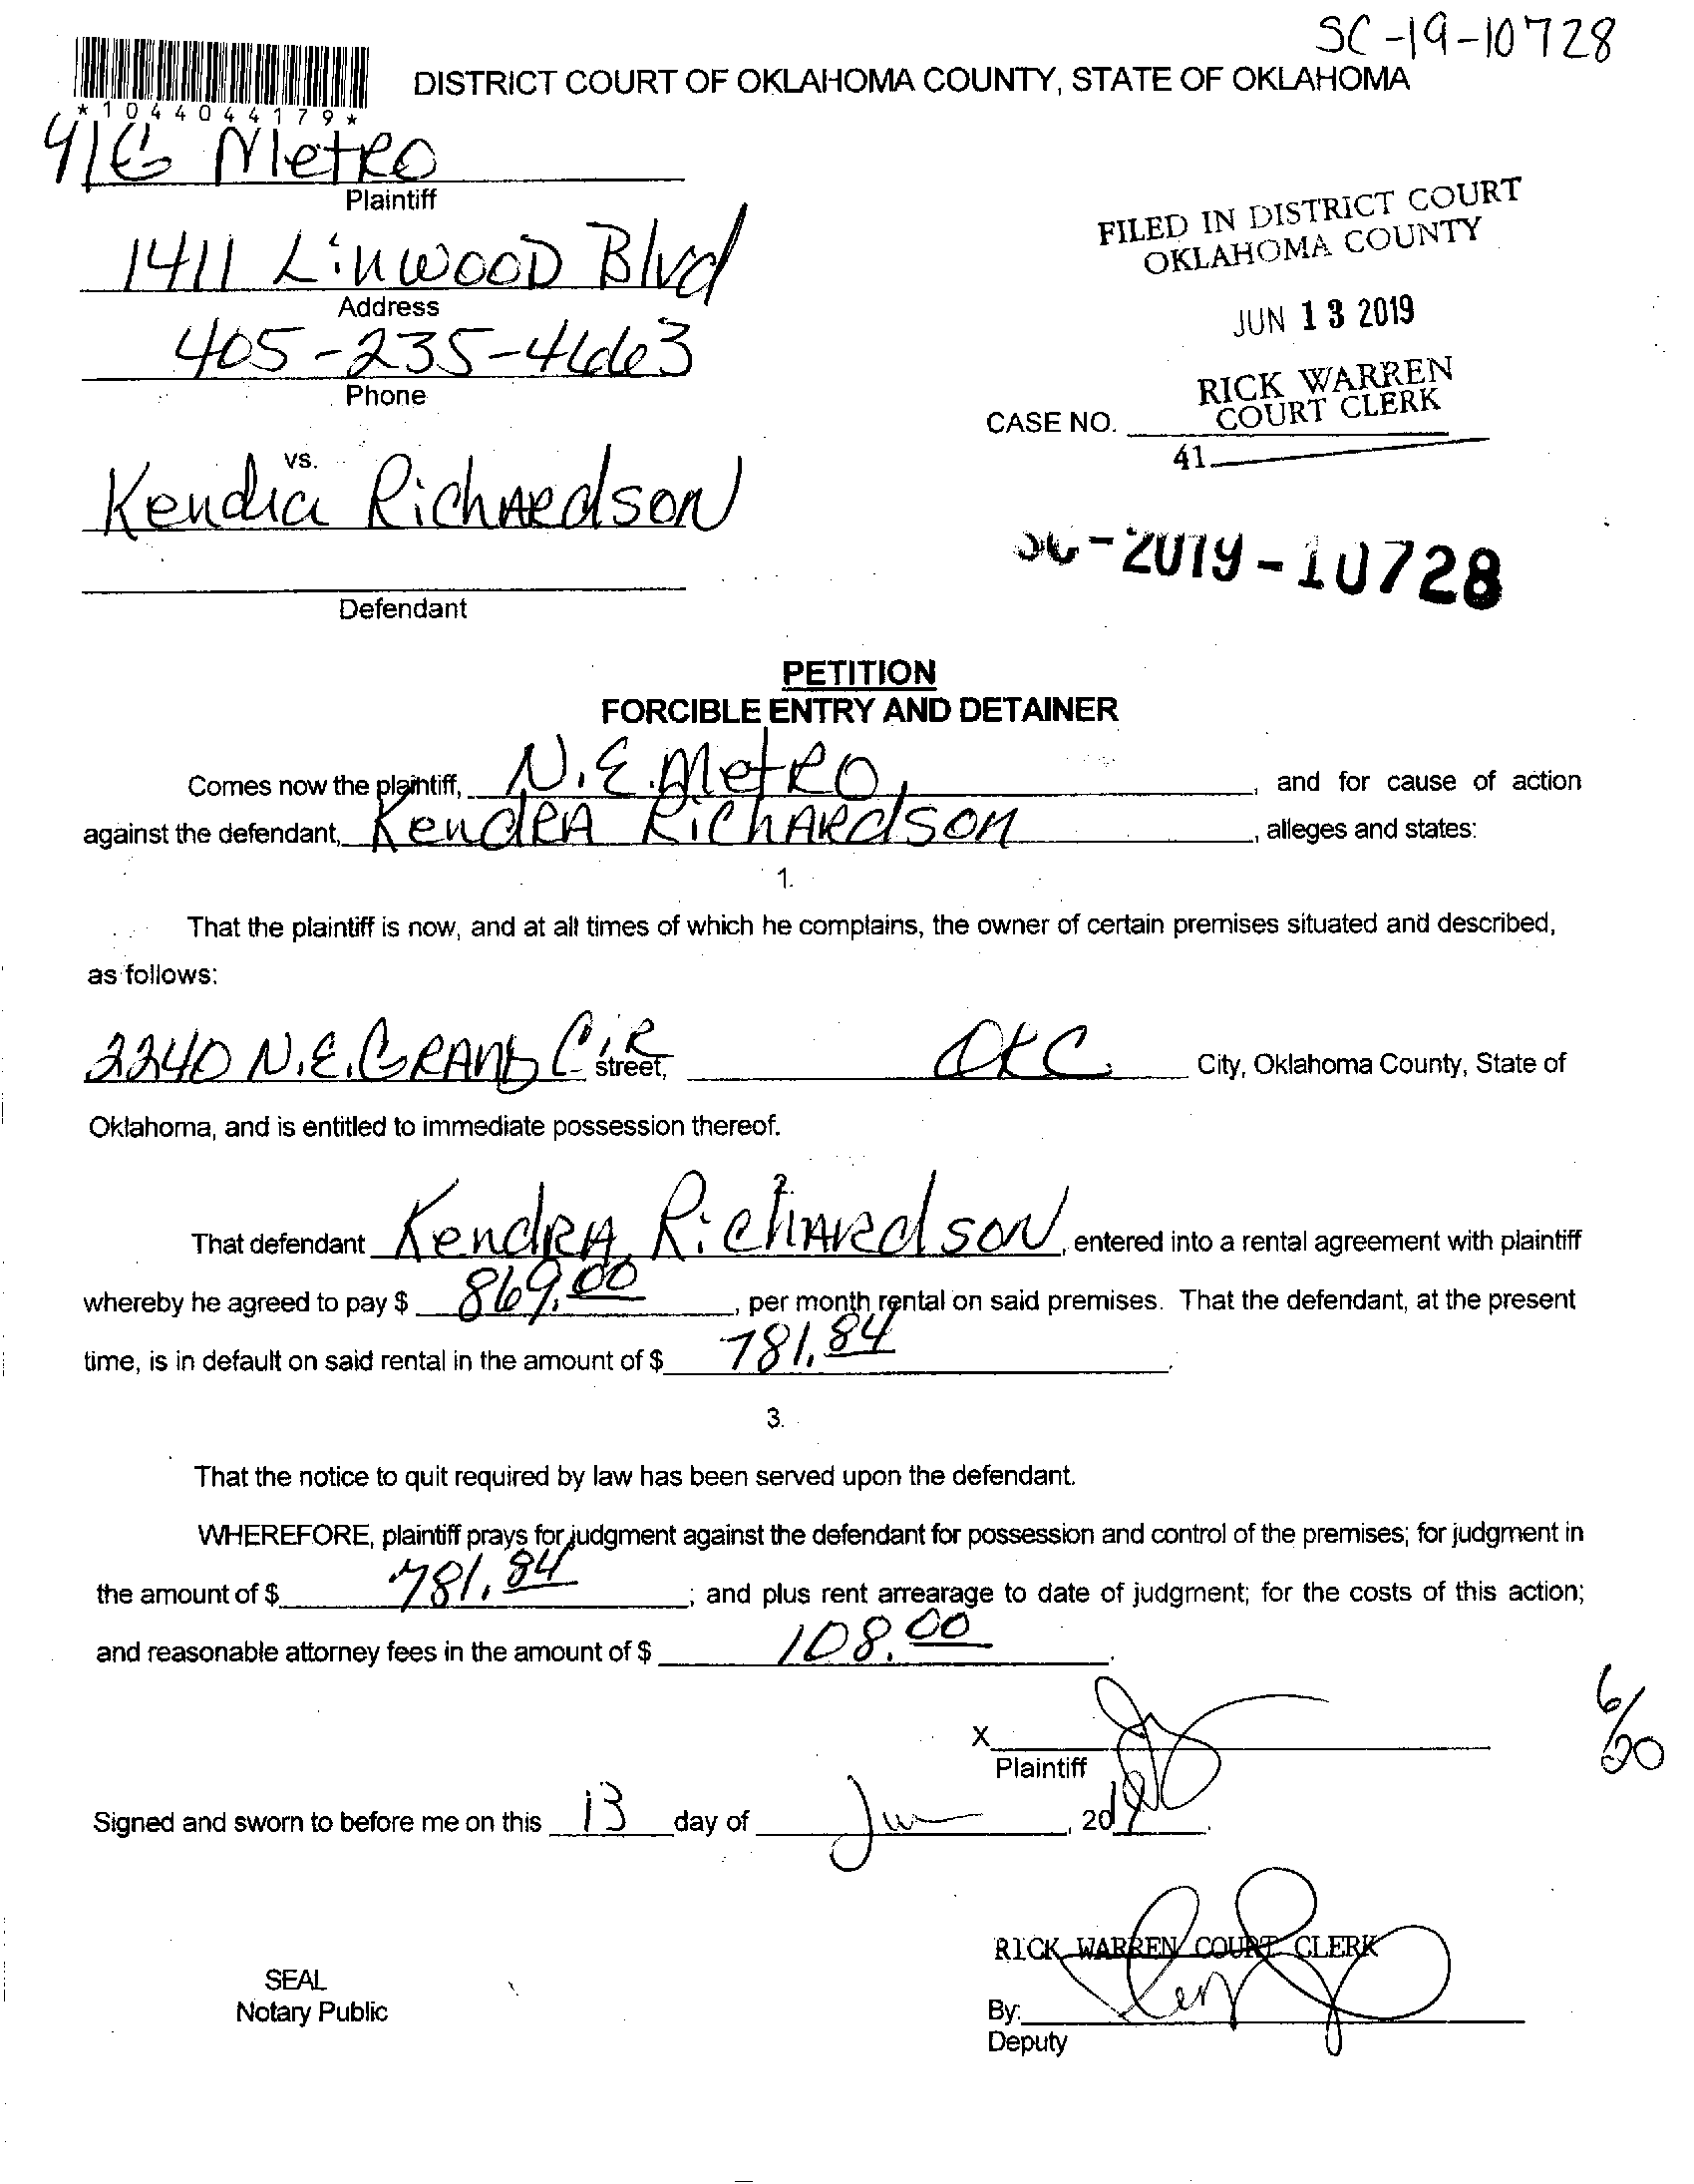 SC-19-10728
DISTRICT COURT OF OKLAHOMA COUNTY, STATE OF OKLAHOMA
*1044044179*
Metro
Plaintiff
1411 Linwood Blvd
Address
405-235-4663
Phone
FILED IN DISTRICT COURT
OKLAHOMA COUNTY
JUN 13 2019
RICK WARREN
COURT CLERK
CASE NO.
41
vs.
Kendra Richardson
Defendant
SC-2019-10728
PETITION
FORCIBLE ENTRY AND DETAINER
Comes now the plaintiff, N.E. Metro, and for cause of action
against the defendant, Kendra Richardson, alleges and states:
1.
That the plaintiff is now, and at all times of which he complains, the owner of certain premises situated and described,
as follows:
2240 N.E. Grand Cir street, OKC City, Oklahoma County, State of
Oklahoma, and is entitled to immediate possession thereof.
2.
That defendant Kendra Richardson, entered into a rental agreement with plaintiff
whereby he agreed to pay $ 869.00, per month rental on said premises. That the defendant, at the present
time, is in default on said rental in the amount of $ 781.84.
3.
That the notice to quit required by law has been served upon the defendant.
WHEREFORE, plaintiff prays for judgment against the defendant for possession and control of the premises; for judgment in
the amount of $ 781.84; and plus rent arrearage to date of judgment; for the costs of this action;
and reasonable attorney fees in the amount of $ 108.00.
6/20
X
Plaintiff
Signed and sworn to before me on this 13 day of Jun, 2019.
RICK WARREN COURT CLERK
SEAL
Notary Public
By:
Deputy